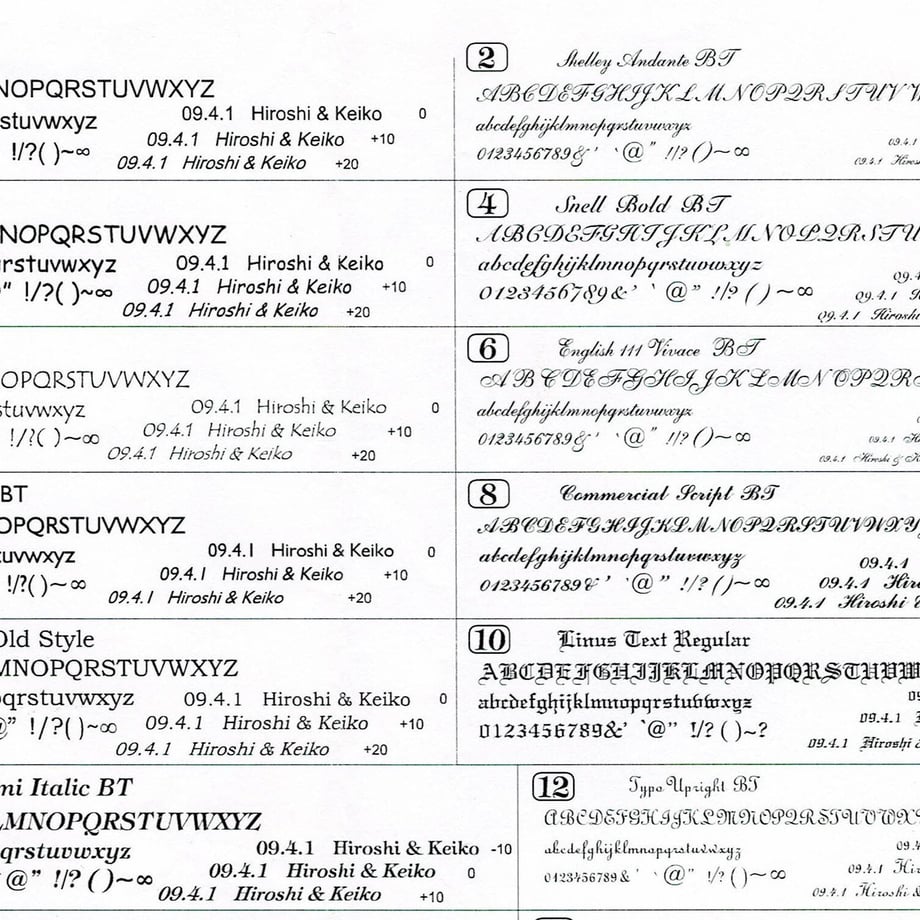 NOPQRSTUVWXYZ
stuvwxyz 09.4.1 Hiroshi & Keiko 0
!/?( )~∞ 09.4.1 Hiroshi & Keiko +10
09.4.1 Hiroshi & Keiko +20
2 Shelley Andante BT
ABCDEFGHIJKLMNOPQRSTUVW
abcdefghijklmnopqrstuvwxyz
09.4.1
0123456789&' `@" !/?()~∞
09.4.1 Hiros
NOPQRSTUVWXYZ
qrstuvwxyz 09.4.1 Hiroshi & Keiko 0
" !/?( )~∞ 09.4.1 Hiroshi & Keiko +10
09.4.1 Hiroshi & Keiko +20
4 Snell Bold BT
ABCDEFGHIJKLMNOPQRSTU
abcdefghijklmnopqrstuvwxyz
09.4.
0123456789&' `@" !/?()~∞
09.4.1
09.4.1 Hiroshi
OPQRSTUVWXYZ
stuvwxyz 09.4.1 Hiroshi & Keiko 0
!/?( )~∞ 09.4.1 Hiroshi & Keiko +10
09.4.1 Hiroshi & Keiko +20
6 English 111 Vivace BT
ABCDEFGHIJKLMNOPQRS
abcdefghijklmnopqrstuvwxyz
0123456789&' `@" !/?()~∞
09.4.1
09.4.1 Hiroshi & K
BT
OPQRSTUVWXYZ
tuvwxyz 09.4.1 Hiroshi & Keiko 0
!/?( )~∞ 09.4.1 Hiroshi & Keiko +10
09.4.1 Hiroshi & Keiko +20
8 Commercial Script BT
ABCDEFGHIJKLMNOPQRSTUVWXY
abcdefghijklmnopqrstuvwxyz
09.4.1
0123456789&' `@" !/?()~∞
09.4.1 Hiro
09.4.1 Hiroshi &
Old Style
MNOPQRSTUVWXYZ
pqrstuvwxyz 09.4.1 Hiroshi & Keiko 0
@" !/?( )~∞ 09.4.1 Hiroshi & Keiko +10
09.4.1 Hiroshi & Keiko +20
10 Linus Text Regular
ABCDEFGHIJKLMNOPQRSTUVW
abcdefghijklmnopqrstuvwxyz
0123456789&' `@" !/?( )~?
09.4.1
09.4.1 Hiroshi &
mi Italic BT
LMNOPQRSTUVWXYZ
qrstuvwxyz 09.4.1 Hiroshi & Keiko -10
@" !/?( )~∞ 09.4.1 Hiroshi & Keiko 0
09.4.1 Hiroshi & Keiko +10
12 Typo Upright BT
ABCDEFGHIJKLMNOPQRSTUVWX
abcdefghijklmnopqrstuvwxyz
09.4
0123456789& ' `@" !/?( )~∞
09.4.1 Hi
09.4.1 Hiroshi &